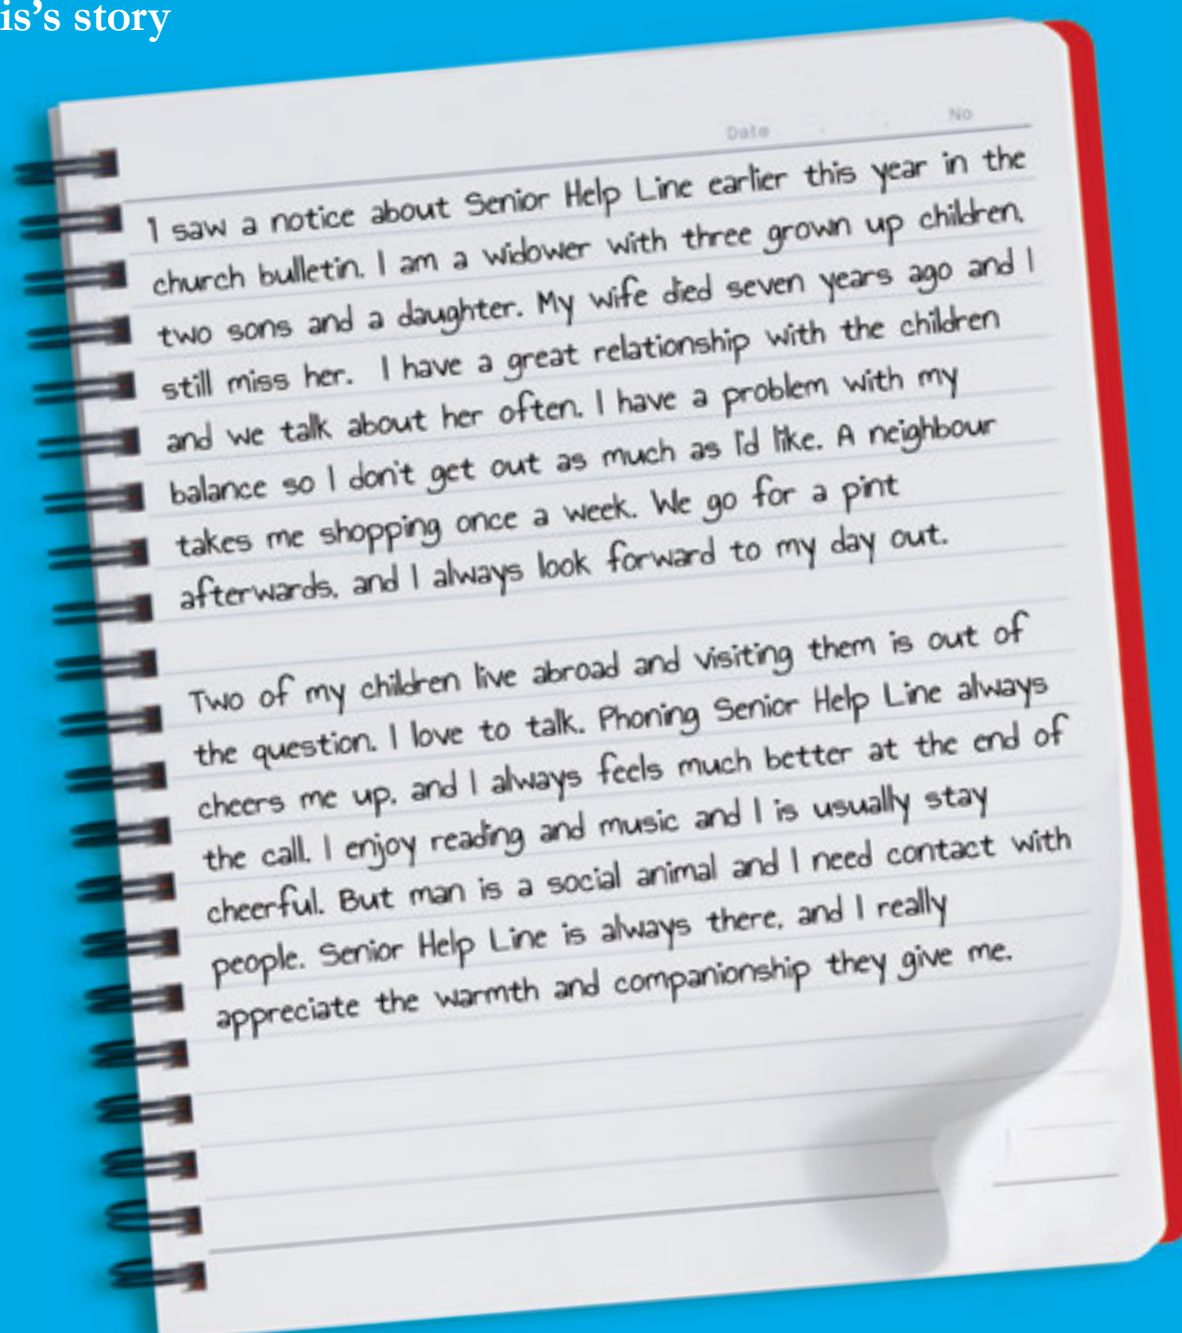 is's story
Date
No
I saw a notice about Senior Help Line earlier this year in the
church bulletin. I am a widower with three grown up children,
two sons and a daughter. My wife died seven years ago and I
still miss her. I have a great relationship with the children
and we talk about her often. I have a problem with my
balance so I don't get out as much as I'd like. A neighbour
takes me shopping once a week. We go for a pint
afterwards, and I always look forward to my day out.
Two of my children live abroad and visiting them is out of
the question. I love to talk. Phoning Senior Help Line always
cheers me up, and I always feels much better at the end of
the call. I enjoy reading and music and I is usually stay
cheerful. But man is a social animal and I need contact with
people. Senior Help Line is always there, and I really
appreciate the warmth and companionship they give me.